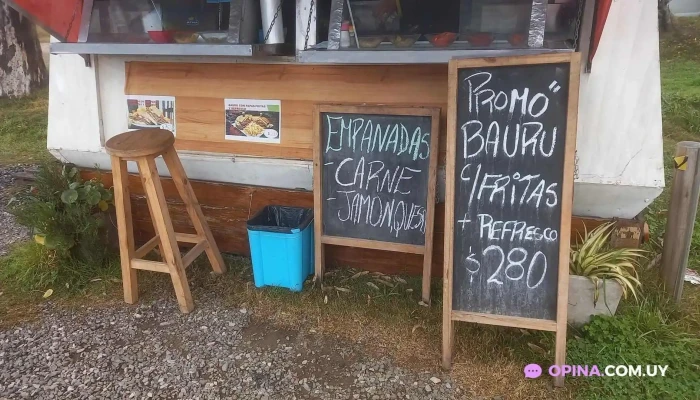 EMPANADAS
- CARNE
- JAMONQUESO
PROMO"
BAURU
C/FRITAS
+ REFRESCO
$280
OPINA.COM.UY